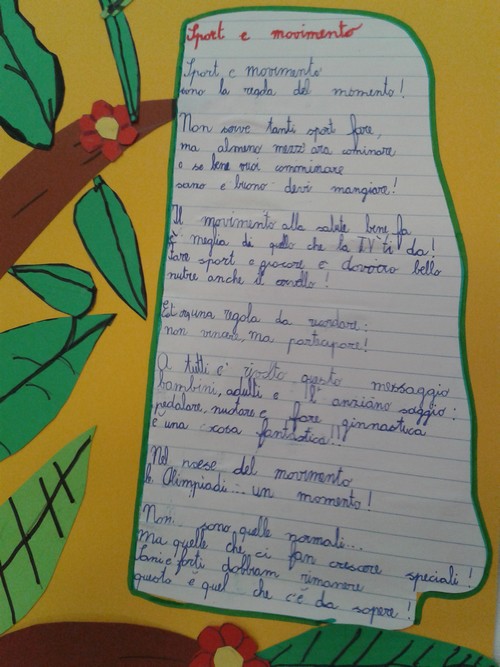 Sport e movimento
Sport e movimento
sono la regola del momento!
Non serve tanti sport fare,
ma almeno mezz'ora cominare
e se bene vuoi camminare
sano e buono devi mangiare!
Il movimento alla salute bene fa
È meglio di quello che la TV ti da!
Fare sport e giocare è davvero bello
nutre anche il cervello!
Ecco una regola da ricordare:
non vincere, ma partecipare!
A tutti è rivolto questo messaggio
bambini, adulti e l'anziano saggio:
pedalare, nuotare e fare ginnastica
è una cosa fantastica!!!
Nel mese del movimento
le Olimpiadi... un momento!
Non sono quelle normali...
Ma quelle che ci fan crescere speciali!
Sani e forti dobbiam rimanere
questo è quel che c'è da sapere!